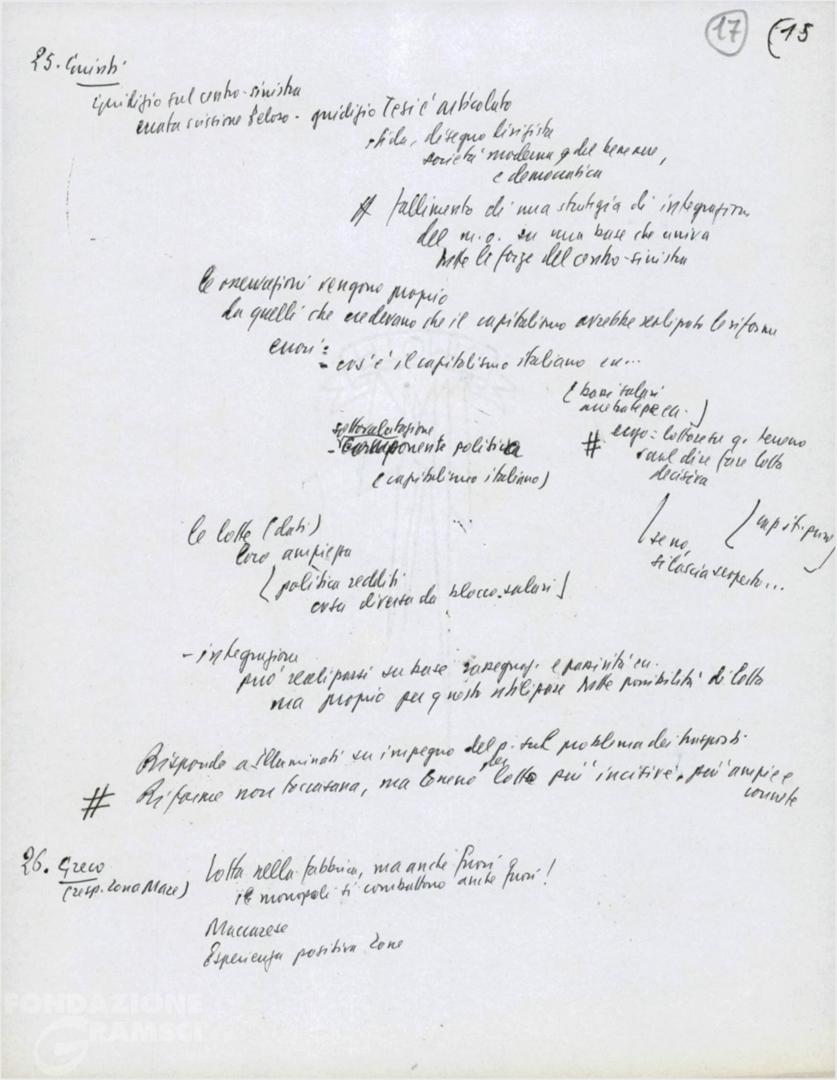 17 (15
25.
giudizio sul centro-sinistra
errata visione Peloso - giudizio Tesi è articolato
sfida, disegno
società moderna, del benessere,
e democratica
# fallimento di una strategia di integrazione
del m.o. su una base che univa
tutte le forze del centro-sinistra
le osservazioni vengono proprio
da quelli che credevano che il capitalismo avrebbe realizzato le riforme
errori:
- cos'è il capitalismo italiano ecc...
(bassi salari
arretratezze ecc.)
sottovalutazione
- componente politica
(capitalismo italiano)
# ergo: lottare su q. terreno
vuol dire fare lotta
decisiva
le lotte (dati)
loro ampiezza
(politica redditi
cosa diversa da blocco salari)
(se no,
si lascia scoperto...
- integrazione
può realizzarsi su base rassegnaz. e passività ecc.
ma proprio per questo utilizzare tutte possibilità di lotta
Risponde a Illuminati su impegno del p. sul problema dei trasporti
# Riforme non toccasana, ma terreno per lotte più incisive, più ampie e
concrete
26. Greco
(resp. Zona Mare)
Lotta nella fabbrica, ma anche fuori
i monopoli si combattono anche fuori!
Maccarese
Esperienza positiva zone
FONDAZIONE
GRAMSCI